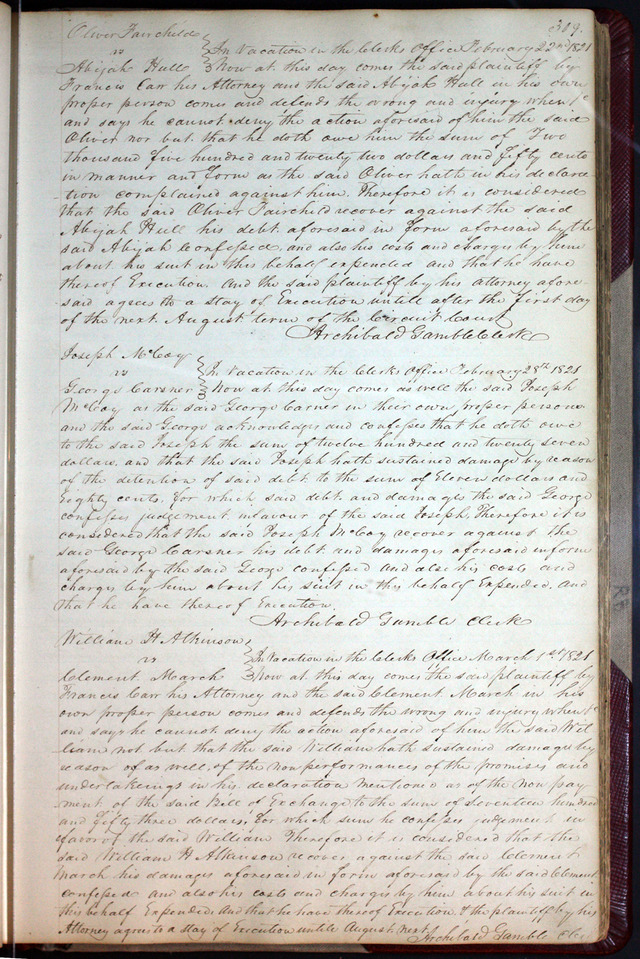 319.
Oliver Fairchild
vs } In Vacation in the Clerks Office February 22nd 1821
Abijah Hull } Now at this day comes the said plaintiff by
Francis Carr his Attorney and the said Abijah Hull in his own
proper person comes and defends the wrong and injury when &c
and says he cannot deny the action aforesaid of him the said
Oliver nor but that he doth owe him the sum of Two
thousand five hundred and twenty two dollars and fifty cents
in manner and form as the said Oliver hath in his declara-
tion complained against him. Therefore it is considered
that the said Oliver Fairchild recover against the said
Abijah Hull his debt aforesaid in form aforesaid by the
said Abijah Confessed, and also his costs and charges by him
about his suit in this behalf expended and that he have
thereof Execution. And the said plaintiff by his attorney afore-
said agrees to a stay of Execution untill after the first day
of the next August term of the Circuit Court
Archibald Gamble Clerk
Joseph McCoy
vs } In Vacation in the Clerks Office February 28th 1821
George Carsner } Now at this day comes as well the said Joseph
McCoy as the said George Carner in their own proper persons
and the said George acknowledges and confesses that he doth owe
to the said Joseph the sum of twelve hundred and twenty seven
dollars, and that the said Joseph hath sustained damage by reason
of the detention of said debt to the sum of Eleven dollars and
Eighty cents, for which said debt and damages the said George
confesses judgement in favour of the said Joseph, Therefore it is
considered that the said Joseph McCoy recover against the
said George Carsner his debt and damages aforesaid in form
aforesaid by the said George confessed and also his costs and
charges by him about his suit in this behalf Expended. And
that he have thereof Execution.
Archibald Gamble Clerk
William H Atkinson
vs } In Vacation in the Clerks Office March 1st 1821
Clement March } Now at this day comes the said plaintiff by
Francis Carr his Attorney and the said Clement March in his
own proper person comes and defends the wrong and injury when &c
and says he cannot deny the action aforesaid of him the said Wil-
liam not but that the said William hath sustained damages by
reason of as well of the non performances of the promises and
undertakings in his declaration mentioned as of the non pay-
ment of the said Bill of Exchange to the sum of seventeen hundred
and fifty three dollars, for which sum he confesses judgement in
favor of the said William Therefore it is considered that the
said William H Atkinson recover against the said Clement
March his damages aforesaid in form aforesaid by the said Clement
confessed and also his costs and charges by him about his suit in
this behalf Expended and that he have thereof Execution. & the plaintiff by his
Attorney agrees to a stay of Execution untile August next
Archibald Gamble Clerk